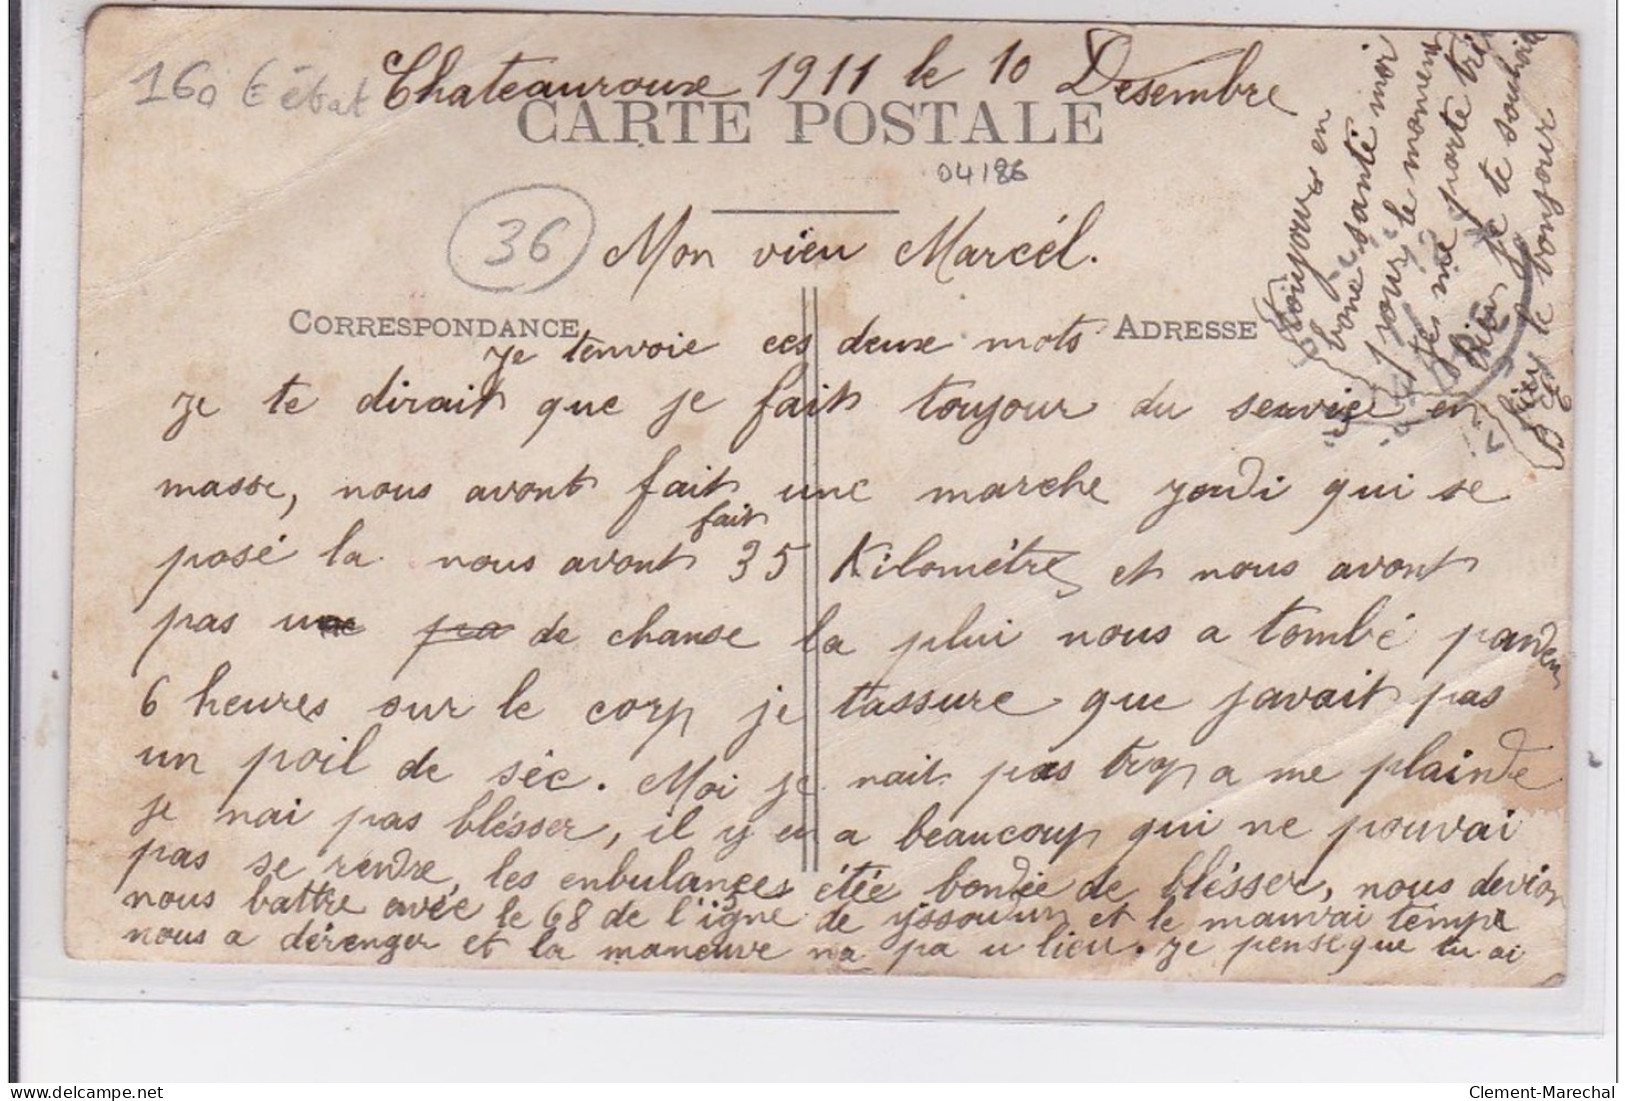 160 € état
Chateauroux 1911 le 10 Desembre
CARTE POSTALE
04186
36
Mon vieu Marcél.
CORRESPONDANCE
ADRESSE
Je tenvoie ces deux mots
je te dirait que je fait toujour du servise en
masse, nous avont fait une marche yeudi qui se
posé la nous avont fait 35 Kilométres et nous avont
pas une pa de chanse la plui nous a tombé panden
6 heures sur le corp je tassure que javait pas
un poil de séc. Moi je nait pas trop a me plainde
je nai pas blésser, il y en a beaucoup qui ne pouvai
pas se rendre, les enbulances étée bondée de blésser, nous devion
nous battre avéc le 68 de l'igne de yssoudun et le mauvai temps
nous a dérenger et la maneuvre na pa u lieu. je pense que tu ai
toujours en
bone santé moi
pour le moment
je me porte tré
Bien je te souhaite
Bien le bonjour
Clement-Marechal